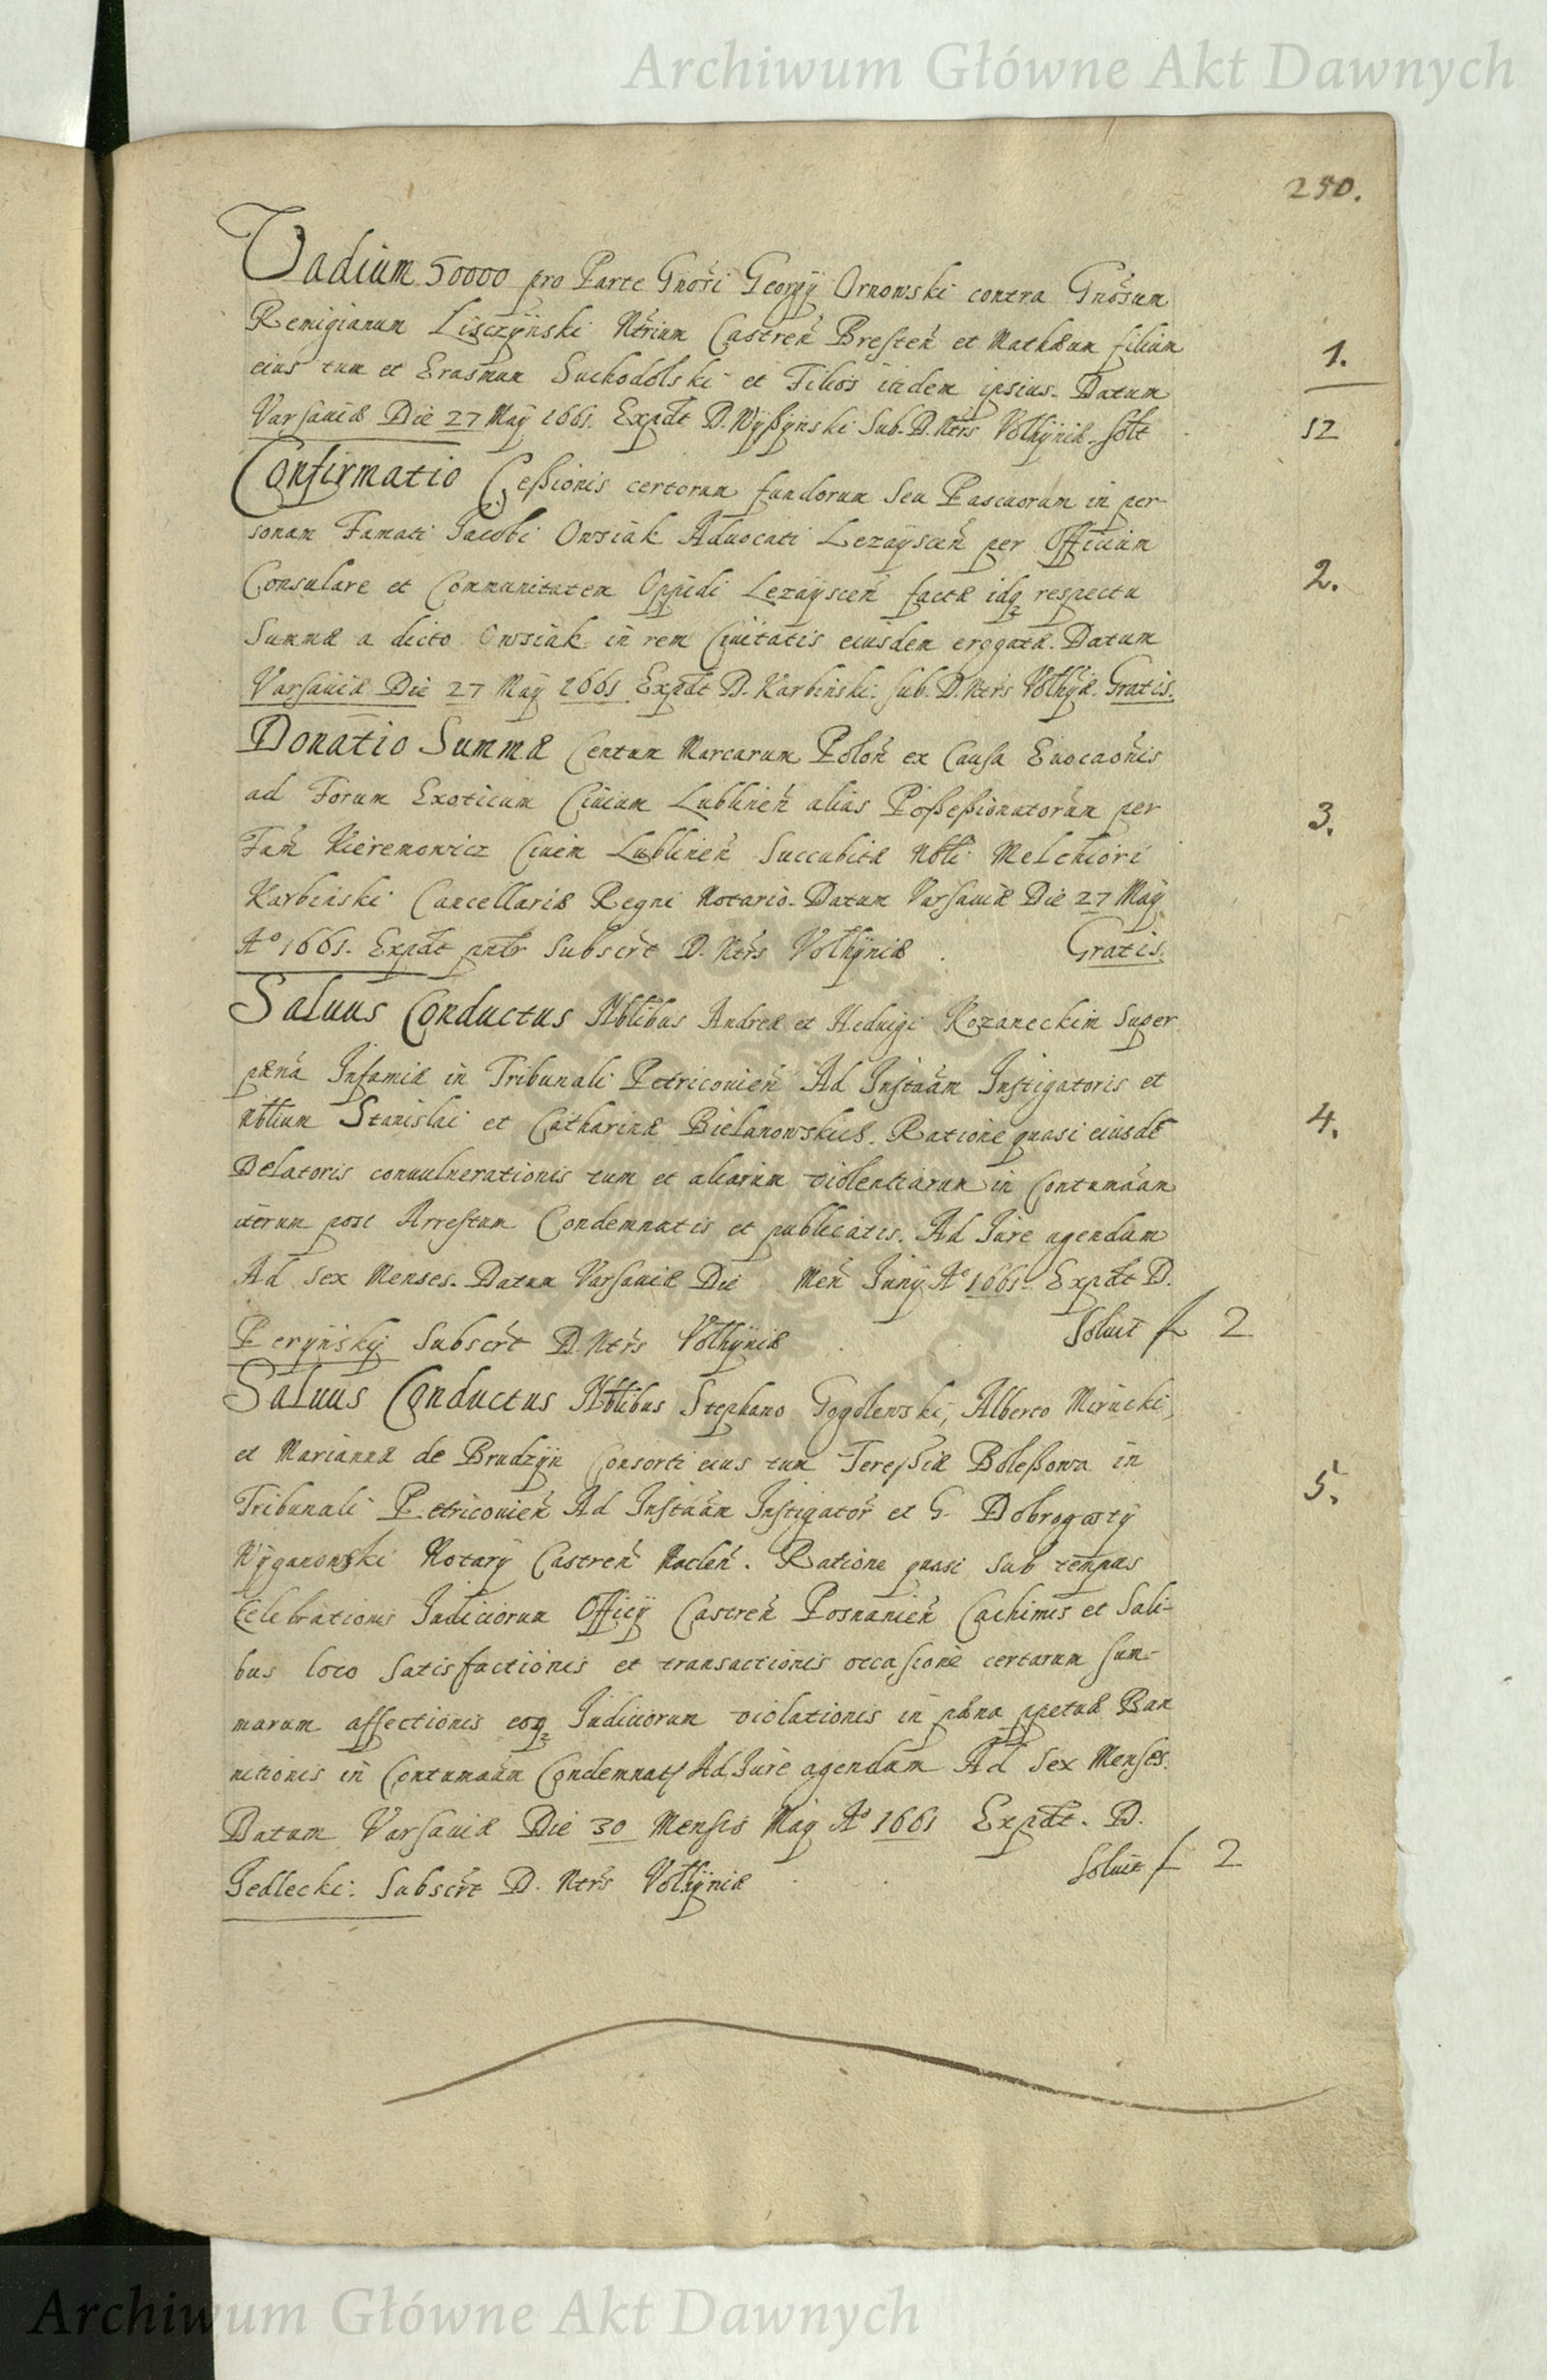 Archiwum Główne Akt Dawnych
250.
Vadium 50000 pro Parte Gnosi Georgij Ornowski contra Gnosum
Remigianum Lisczynski Ntrium Castren Bresten et Mathæum filium
eius tum et Erasmum Suchodolski et Filios itidem ipsius. Datum
1.
Varsaviæ Die 27 Maij 1661. Expdt D. Wyszynski Sub. D. Ntrs Volhyniæ solt
52
Confirmatio Cessionis certorum fundorum seu Pascuorum in per
sonam Famati Jacobi Owsiak Advocati Lezayscen per Officium
Consulare et Communitatem Oppidi Lezayscen factæ idq respectu
2.
Summæ a dicto Owsiak in rem Civitatis eiusdem erogatæ. Datum
Varsaviæ Die 27 Maij 1661 Expdt D. Karbinski. sub. D. Ntrs Volhyæ. Gratis.
Donatio Summæ Centum Marcarum Polon ex Causa Evocaonis
ad Forum Exoticum Civium Lublinen alias Possessionatorum per
3.
Fam Kieremowicz Civem Lublinen Succubitæ Nbli Melchiori
Karbinski Cancellariæ Regni Notario. Datum Varsaviæ Die 27 Maij
Aº 1661. Expdt pntr Subscrt D. Ntrs Volhyniæ Gratis.
Salvus Conductus Nblibus Andreæ et Hedvigi Kozaneckim super
pæna Infamiæ in Tribunali Petricovien Ad Instãam Instigatoris et
Nblium Stanislai et Catharinæ Bielanowskich. Ratione quasi eiusdē
4.
Delatoris convulnerationis tum et aliarum violentiarum in Contumaãm
iterum post Arrestum Condemnatis et publicatis. Ad Jure agendum
Ad sex Menses. Datum Varsaviæ Die Men Junij Aº 1661. Expdt D.
Perynskij Subscrt D. Ntrs Volhyniæ Solvit f 2
Salvus Conductus Nblibus Stephano Gogolewski, Alberto Mirucki,
et Mariannæ de Brudzyn Consorti eius tum Teressiæ Bolessowa in
Tribunali Petricovien Ad Instãam Instigator et G. Dobrogosty
5.
Wyganowski Notarij Castren Naclen. Ratione quasi sub tempus
Celebrationis Judiciorum Officij Castren Posnanien Cachinis et Sali-
bus loco satisfactionis et transactionis occasione certarum sum-
marum affectionis eoq Judiciorum violationis in pæna ppetuæ Ban
nitionis in Contumaãm Condemnat Ad Jure agendum Ad sex Menses.
Datum Varsaviæ Die 30 Mensis Maij Aº 1661 Expdt. D.
Jedlecki. Subscrt D. Ntrs Volhyniæ Solvit f 2
Archiwum Główne Akt Dawnych